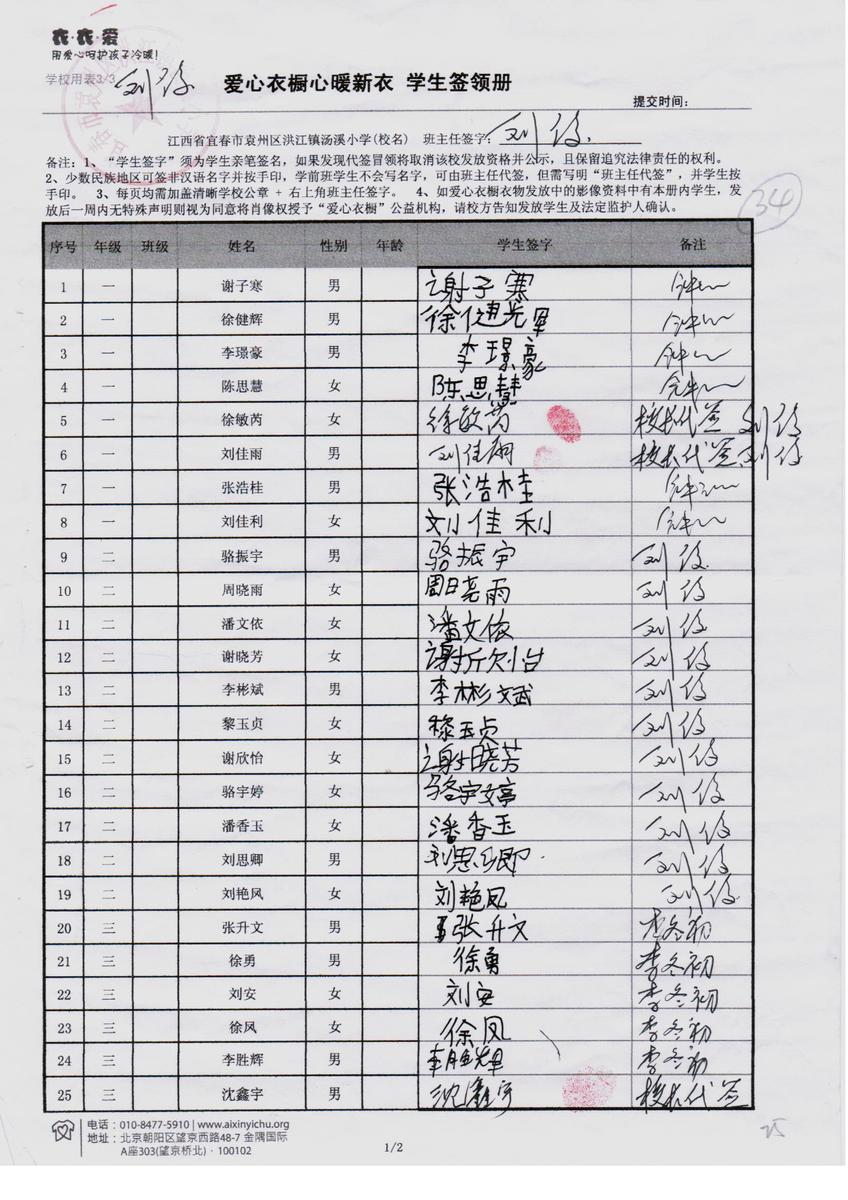 衣·衣·爱
用爱心呵护孩子冷暖!
学校用表3/3
爱心衣橱心暖新衣 学生签领册
提交时间:
江西省宜春市袁州区洪江镇汤溪小学(校名) 班主任签字:
备注: 1、“学生签字”须为学生亲笔签名,如果发现代签冒领将取消该校发放资格并公示,且保留追究法律责任的权利。
2、少数民族地区可签非汉语名字并按手印,学前班学生不会写名字,可由班主任代签,但需写明“班主任代签”,并学生按
手印。 3、每页均需加盖清晰学校公章 + 右上角班主任签字。 4、如爱心衣橱衣物发放中的影像资料中有本册内学生,发
放后一周内无特殊声明则视为同意将肖像权授予“爱心衣橱”公益机构,请校方告知发放学生及法定监护人确认。
34
序号 年级 班级 姓名 性别 年龄 学生签字 备注
1 一 谢子寒 男 谢子寒
2 一 徐健辉 男 徐健辉
3 一 李璟豪 男 李璟豪
4 一 陈思慧 女 陈思慧
5 一 徐敏芮 女 徐敏芮 校长代签
6 一 刘佳雨 男 刘佳雨 校长代签
7 一 张浩桂 男 张浩桂
8 一 刘佳利 女 刘佳利
9 二 骆振宇 男 骆振宇
10 二 周晓雨 女 周晓雨
11 二 潘文依 女 潘文依
12 二 谢晓芳 女 谢欣怡
13 二 李彬斌 男 李彬斌
14 二 黎玉贞 女 黎玉贞
15 二 谢欣怡 女 谢晓芳
16 二 骆宇婷 女 骆宇婷
17 二 潘香玉 女 潘香玉
18 二 刘思卿 男 刘思卿
19 二 刘艳风 女 刘艳凤
20 三 张升文 男 张升文 李冬初
21 三 徐勇 男 徐勇 李冬初
22 三 刘安 女 刘安 李冬初
23 三 徐风 女 徐凤 李冬初
24 三 李胜辉 男 李胜辉 李冬初
25 三 沈鑫宇 男 沈鑫宇 校长代签
电话: 010-8477-5910 | www.aixinyichu.org
地址: 北京朝阳区望京西路48-7 金隅国际
A座303(望京桥北) · 100102
1/2
25